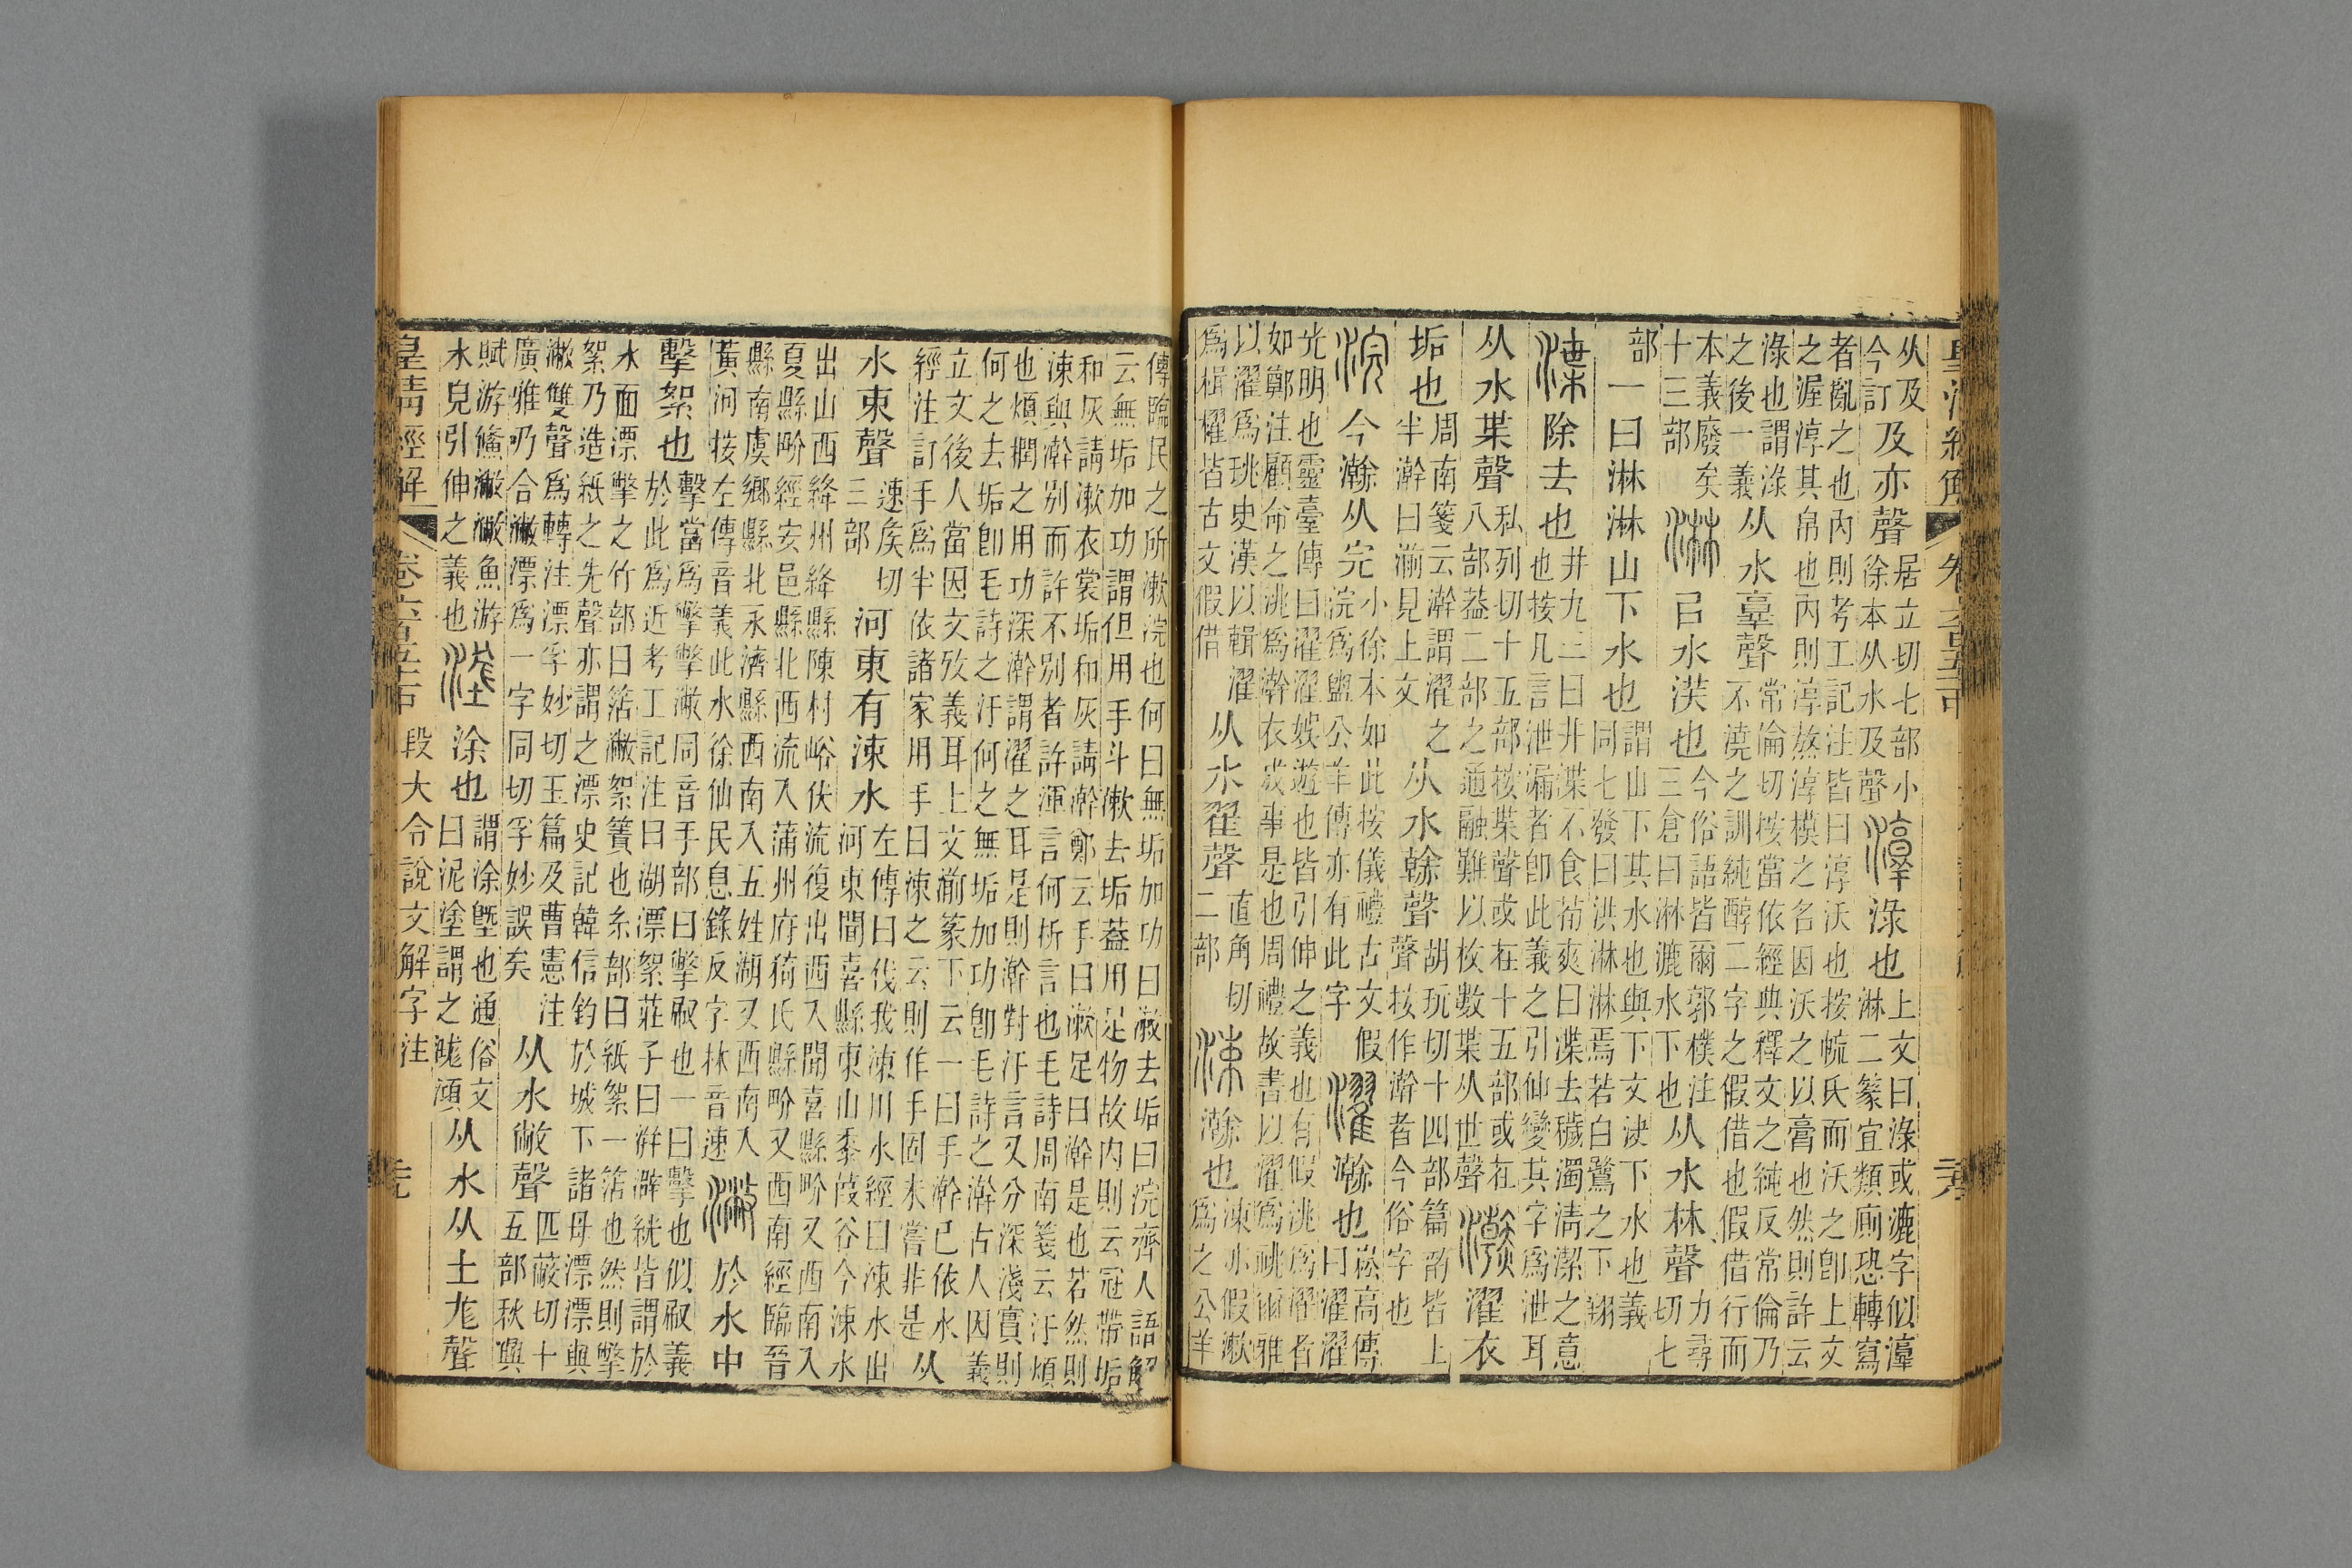 从及今訂及亦聲居立切七部小徐本从水及聲淳淥也上文曰淥或漉字似淳淋二篆宜類廁恐轉寫
者亂之也內則考工記注皆曰淳沃也按㡛氏而沃之卽上文之渥淳其帛也內則淳熬淳模之名因沃之以膏也然則許云
淥也謂淥之後一義从水𦎫聲常倫切按當依經典釋文之純反常倫乃不澆之訓純醇二字之假借也假借行而
本義廢矣十三部淋㠯水渶也今俗語皆爾郭樸注三倉曰淋漉水下也从水林聲力尋切七
部一曰淋淋山下水也謂山下其水也與下文決下水也義同七發曰洪淋淋焉若白鷺之下翔
渫除去也井九三曰井渫不食荀爽曰渫去穢濁淸潔之意也按凡言泄漏者卽此義之引伸變其字爲泄耳
从水枼聲私列切十五部按枼聲或在十五部或在八部葢二部之通融難以枚數枼从世聲濯衣
垢也周南箋云澣謂濯之半澣曰湔見上文从水𠦬聲胡玩切十四部篇韵皆上聲按作澣者今俗字也
浣今瀚从完小徐本如此按儀禮古文假浣爲盥公羊傳亦有此字濯瀚也崧高傳曰濯濯
光明也靈臺傳曰濯濯娛遊也皆引伸之義也有假洮爲濯者如鄭注顧命之洮爲澣衣成事是也周禮故書以濯爲祧爾雅
以濯爲珧史漢以輯濯爲楫櫂皆古文假借从水翟聲直角切二部涑瀚也涑亦假漱爲之公羊
傳臨民之所漱浣也何曰無垢加功曰漱去垢曰浣齊人語解云無垢加功謂但用手斗漱去垢葢用足物故內則云冠帶垢
和灰請漱衣裳垢和灰請澣鄭云手曰漱足曰澣是也若然則涑與澣別而許不別者許渾言何析言也毛詩周南箋云汙煩
也煩撋之用功深澣謂濯之耳是則澣對汙言又分深淺實則何之去垢卽毛詩之汙何之無垢加功卽毛詩之澣古人因義
立文後人當因文攷義耳上文湔篆下云一曰手澣已依水經注訂手爲半依諸家用手曰涑之云則作手固未嘗非是从
水束聲速矦切三部河東有涑水左傳曰伐我涑川水經曰涑水出河東聞喜縣東山黍葭谷今涑水
出山西絳州絳縣陳村峪伏流復出西入聞喜縣畍又西南入夏縣畍經安邑縣北西流入蒲州府猗氏縣畍又西南經臨晉
縣南虞鄉縣北永濟縣西南入五姓湖又西南入黃河按左傳音義此水徐仙民息錄反字林音速潎於水中
擊絮也擊當爲擎擎潎同音手部曰擎㕞也一曰擊也似㕞義於此爲近考工記注曰湖漂絮莊子曰洴澼絖皆謂於
水面漂擎之竹部曰箈潎絮簀也糸部曰紙絮一箈也然則擎絮乃造紙之先聲亦謂之漂史記韓信釣於城下諸母漂漂與
潎雙聲爲轉注漂孚妙切玉篇及曹憲注廣雅乃合潎漂爲一字同切孚妙誤矣从水敝聲匹蔽切十五部秋興
賦游鯈潎潎魚游水皃引伸之義也涂也謂涂墍也通俗文曰泥塗謂之澒从水从土尨聲
皇淸經解 段大令說文解字注